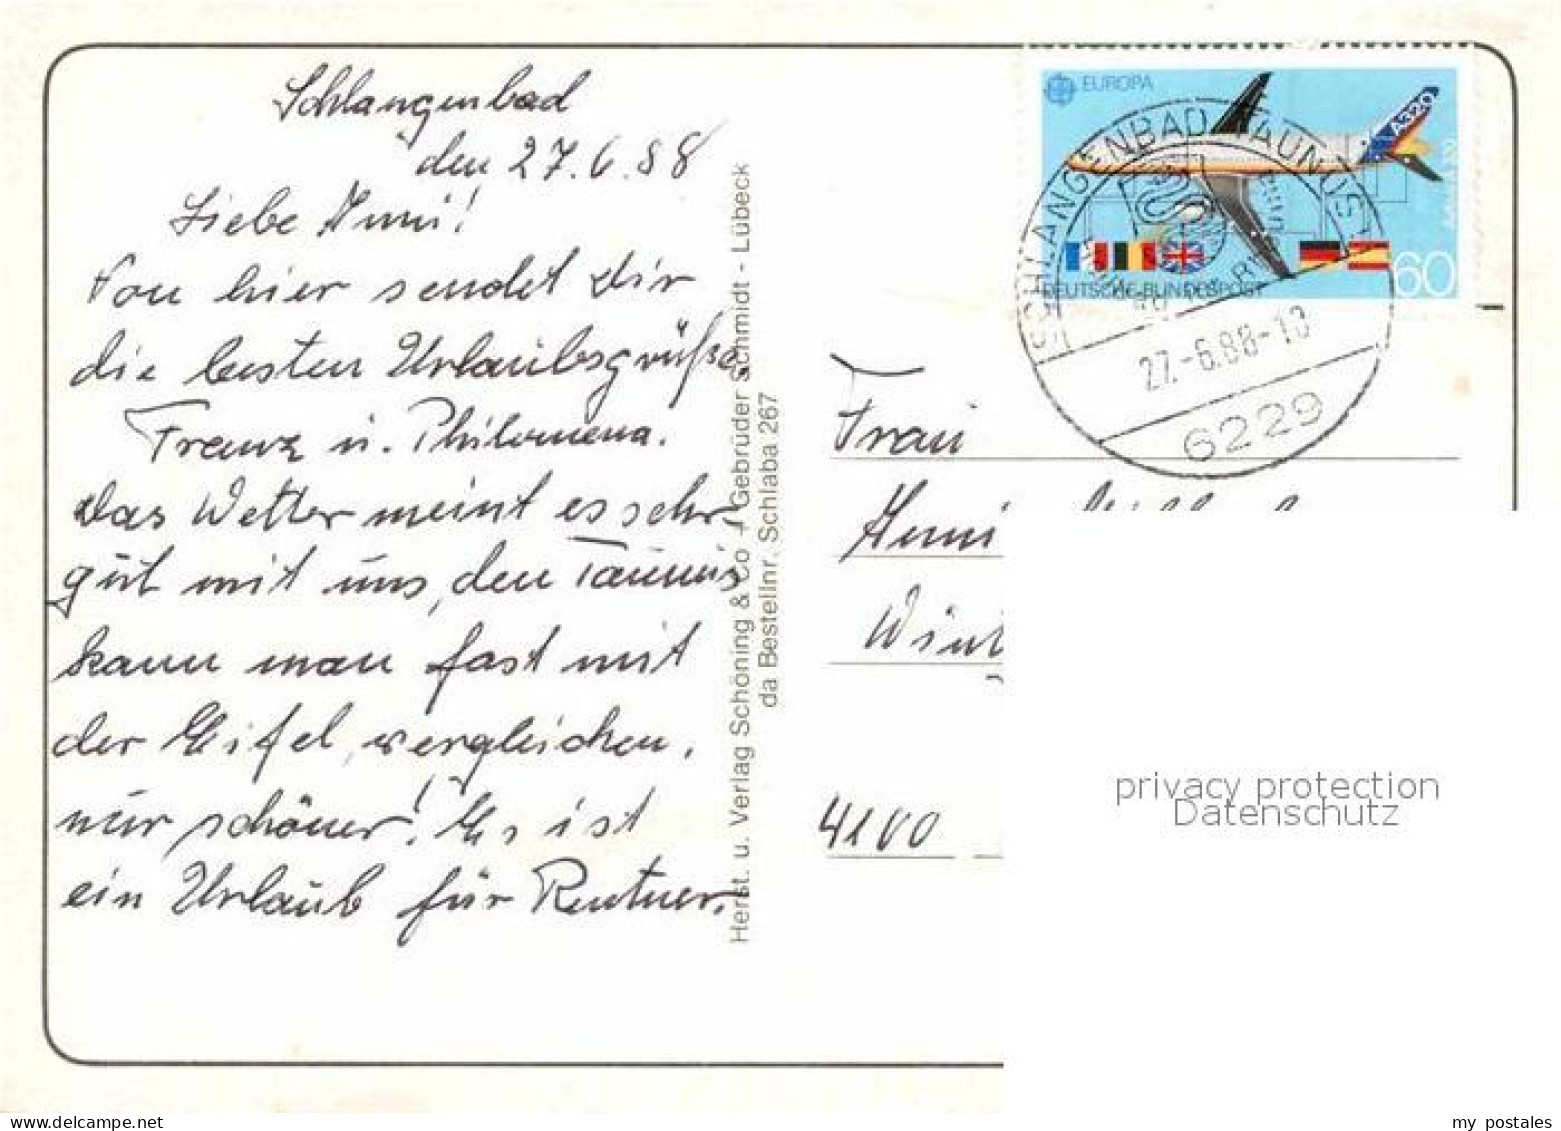 Schlangenbad
den 27.6.88
Liebe Änni!
Von hier sendet Dir
die besten Urlaubsgrüße
Franz u. Philomena.
Das Wetter meint es sehr
gut mit uns, den Taunus
kann man fast mit
der Eifel, vergleichen,
nur schöner! Es ist
ein Urlaub für Rentner.
Herst. u. Verlag Schöning & Co + Gebrüder Schmidt - Lübeck
da Bestellnr. Schlaba 267
EUROPA
A320
DEUTSCHE BUNDESPOST
60
SCHLANGENBAD TAUNUS
27.-6.88-10
6229
Frau
Änni
4100
privacy protection
Datenschutz
my postales